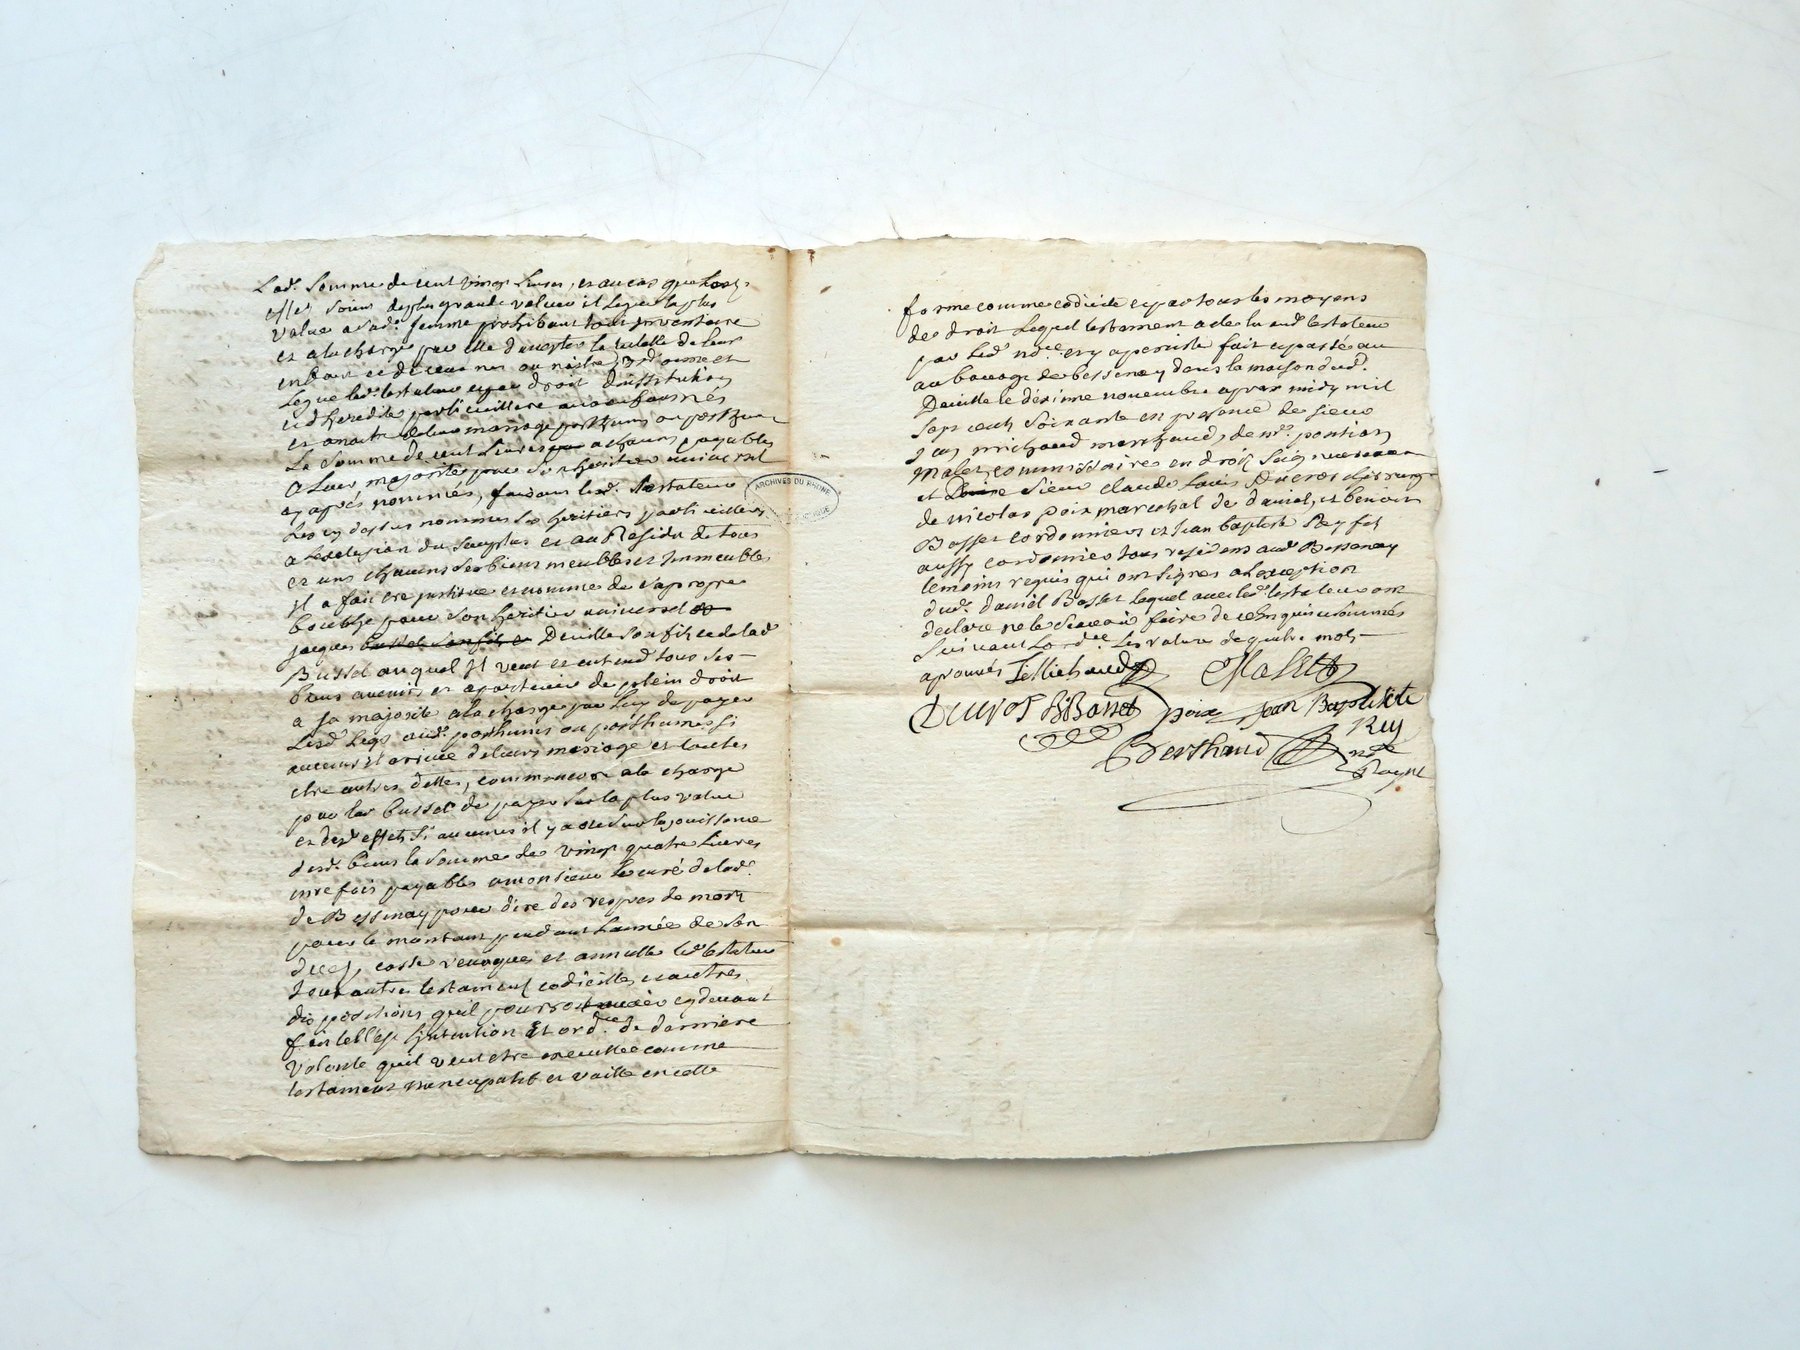 Lad.e Somme de cent vingt Livres, et au cas que
soient de plus grande valeur il Legue la plus
value a sad.e femme prohibant tout inventaire
et a la charge par elle d'accepter la tutelle de leur
enfant
Legue led. testateur et par droit d'institution
et d'heredité particulliere aux enfans nés
et a naitre de leur mariage posthums ou posthumes
La Somme de cent Livres a chacun payables
a Leur majorité par Son heritier universel
cy après nommés, faisant led. testateur
Les cy dessus nommés Ses heritiers particulliers
a L'exclusion du Surplus et au Residu de tous
et uns chacuns Ses biens meubles et Immeubles
il a fait et institue et nomme de Sa propre
bouche pour Son heritier universel
jacques Deville Son fils et de lad.
Busset auquel il veut et entend tous Ses
biens avenir et apartenir de plein droit
a Sa majorité a la charge par Luy de payer
Lesd. Legs aud. posthumes ou posthumes Si
aucuns il arrive de leurs mariage et toutes
Ses autres dettes, comm'encore a la charge
par lad. Busset de payer Sur la plus value
esd. effets Si aucunes il y a et Sur la jouissance
desd. biens la Somme de vingt quatre Livres
une fois payables a monsieur Le curé delad.
de Bessenay pour dire des vespres de morts
pour le montant pendant L'année de Son
deces, casse revoques et annulle led. testateur
tous autres testament codicilles et autres
dispositions qu'il pourroit cy devant
telle est Son intention et ord.ce de derniere
volonté qu'il veut etre executtée comme
testament nuncupatif et vaille en cette
ARCHIVES DU RHONE
forme comme codicile et par tous les moyens
de droit Lequel testament a été lu aud. testateur
par Led. no.re et y a persisté fait et passé au
au bourg de bessenay dans la maison dud.
Deville le dixieme novembre apres midy mil
Sept cents Soixante en presence de Sieur
michaud marchand, de m.e pontian
Malet commissaire en droits Seig
et Sieur claude Louis Ducros chirurgien
de nicolas poix marechal de daniel, et benoit
Bosset cordonniers et jean baptiste Rey fils
aussy cordonnier tous residens aud. Bessenay
temoins requis qui ont signés a L'exception
dud. daniel Bosset lequel avec led. testateur ont
declaré ne le Scavoir faire de ce enquis et Sommés
Suivant L'ord.ce Les ratures de quatre mots
aprouvés Michaud Malet
Ducros B Bosset poix Jean Baptiste
Rey
Berthaud no.re
Royal